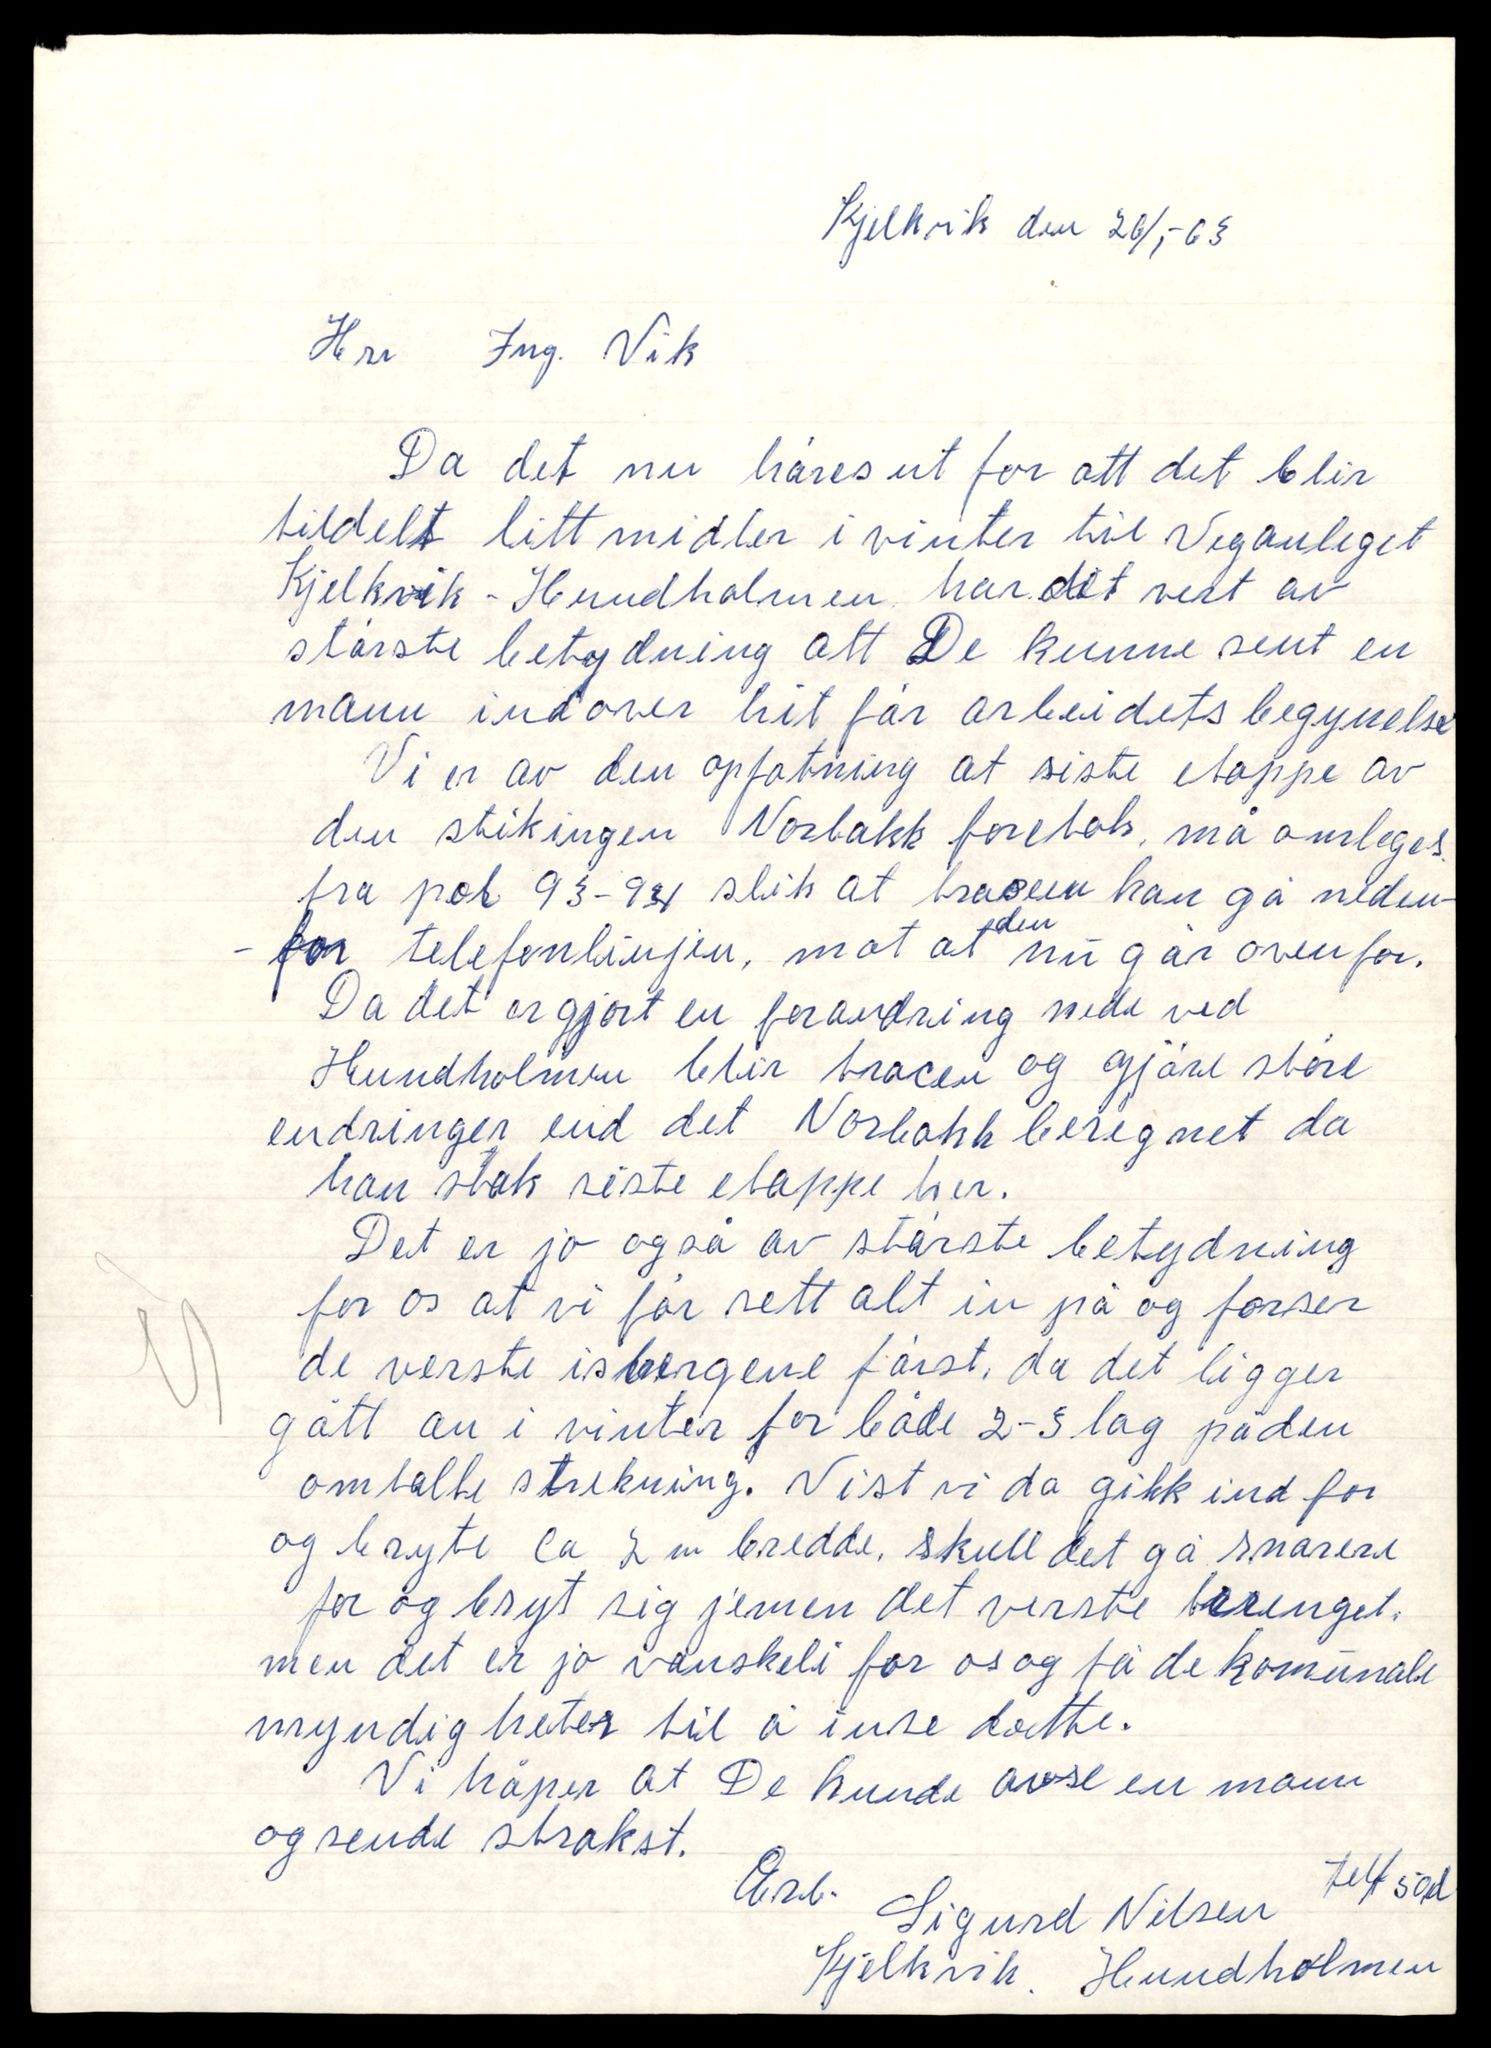 Kjelkvik den 26/1-63
Herr Ing. Vik
Da det nu høres ut for att det blir
tildelt litt midler i vinter til Veganleget
Kjelkvik - Hundholmen har det vert av
største betydning att De kunne sent en
mann indover hit før arbeidets begynelse
Vi er av den opfatning at siste etappe av
den stikingen Norbakk foretok, må omleges.
fra pel 93-94 slik at traseen kan gå neden-
- for telefonlinjen, mot at den nu går ovenfor.
Da det er gjort en forandring nede ved
Hundholmen blir tracen og gjøre støre
endringer end det Norbakk beregnet da
han stak siste etappe her.
Det er jo også av største betydning
for os at vi får sett alt in på og forser
de verste isbergene først, da det ligger
gått an i vinter for både 2-3 lag på den
omtalte strekning. Vist vi da gikk ind for
og bryte ca 2 m bredde, skull det gå snarere
for og bryt sig jemen det verste terenget.
men det er jo vanskeli for os og få de komunale
myndigheter til å inse dette.
Vi håper at De kunde avse en mann
og sende strakst.
Erb.
Sigurd Nilsen telf 50d
Kjelkvik. Hundholmen